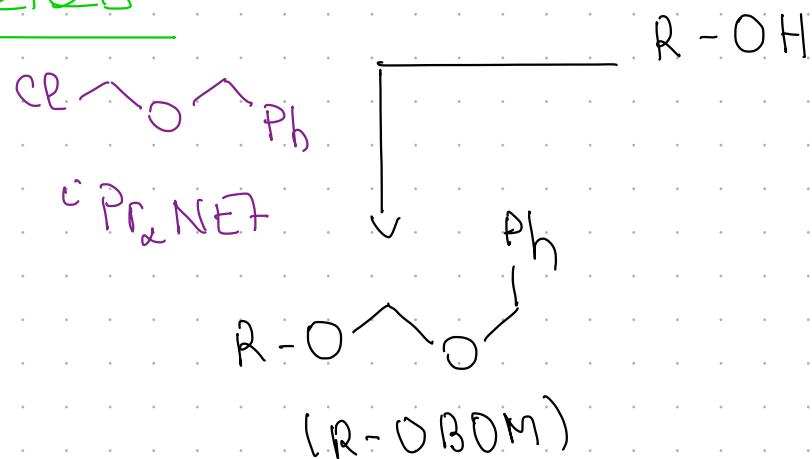 R - OH
Cl O Ph
iPr2NEt
Ph
R - O O
(R - OBOM)